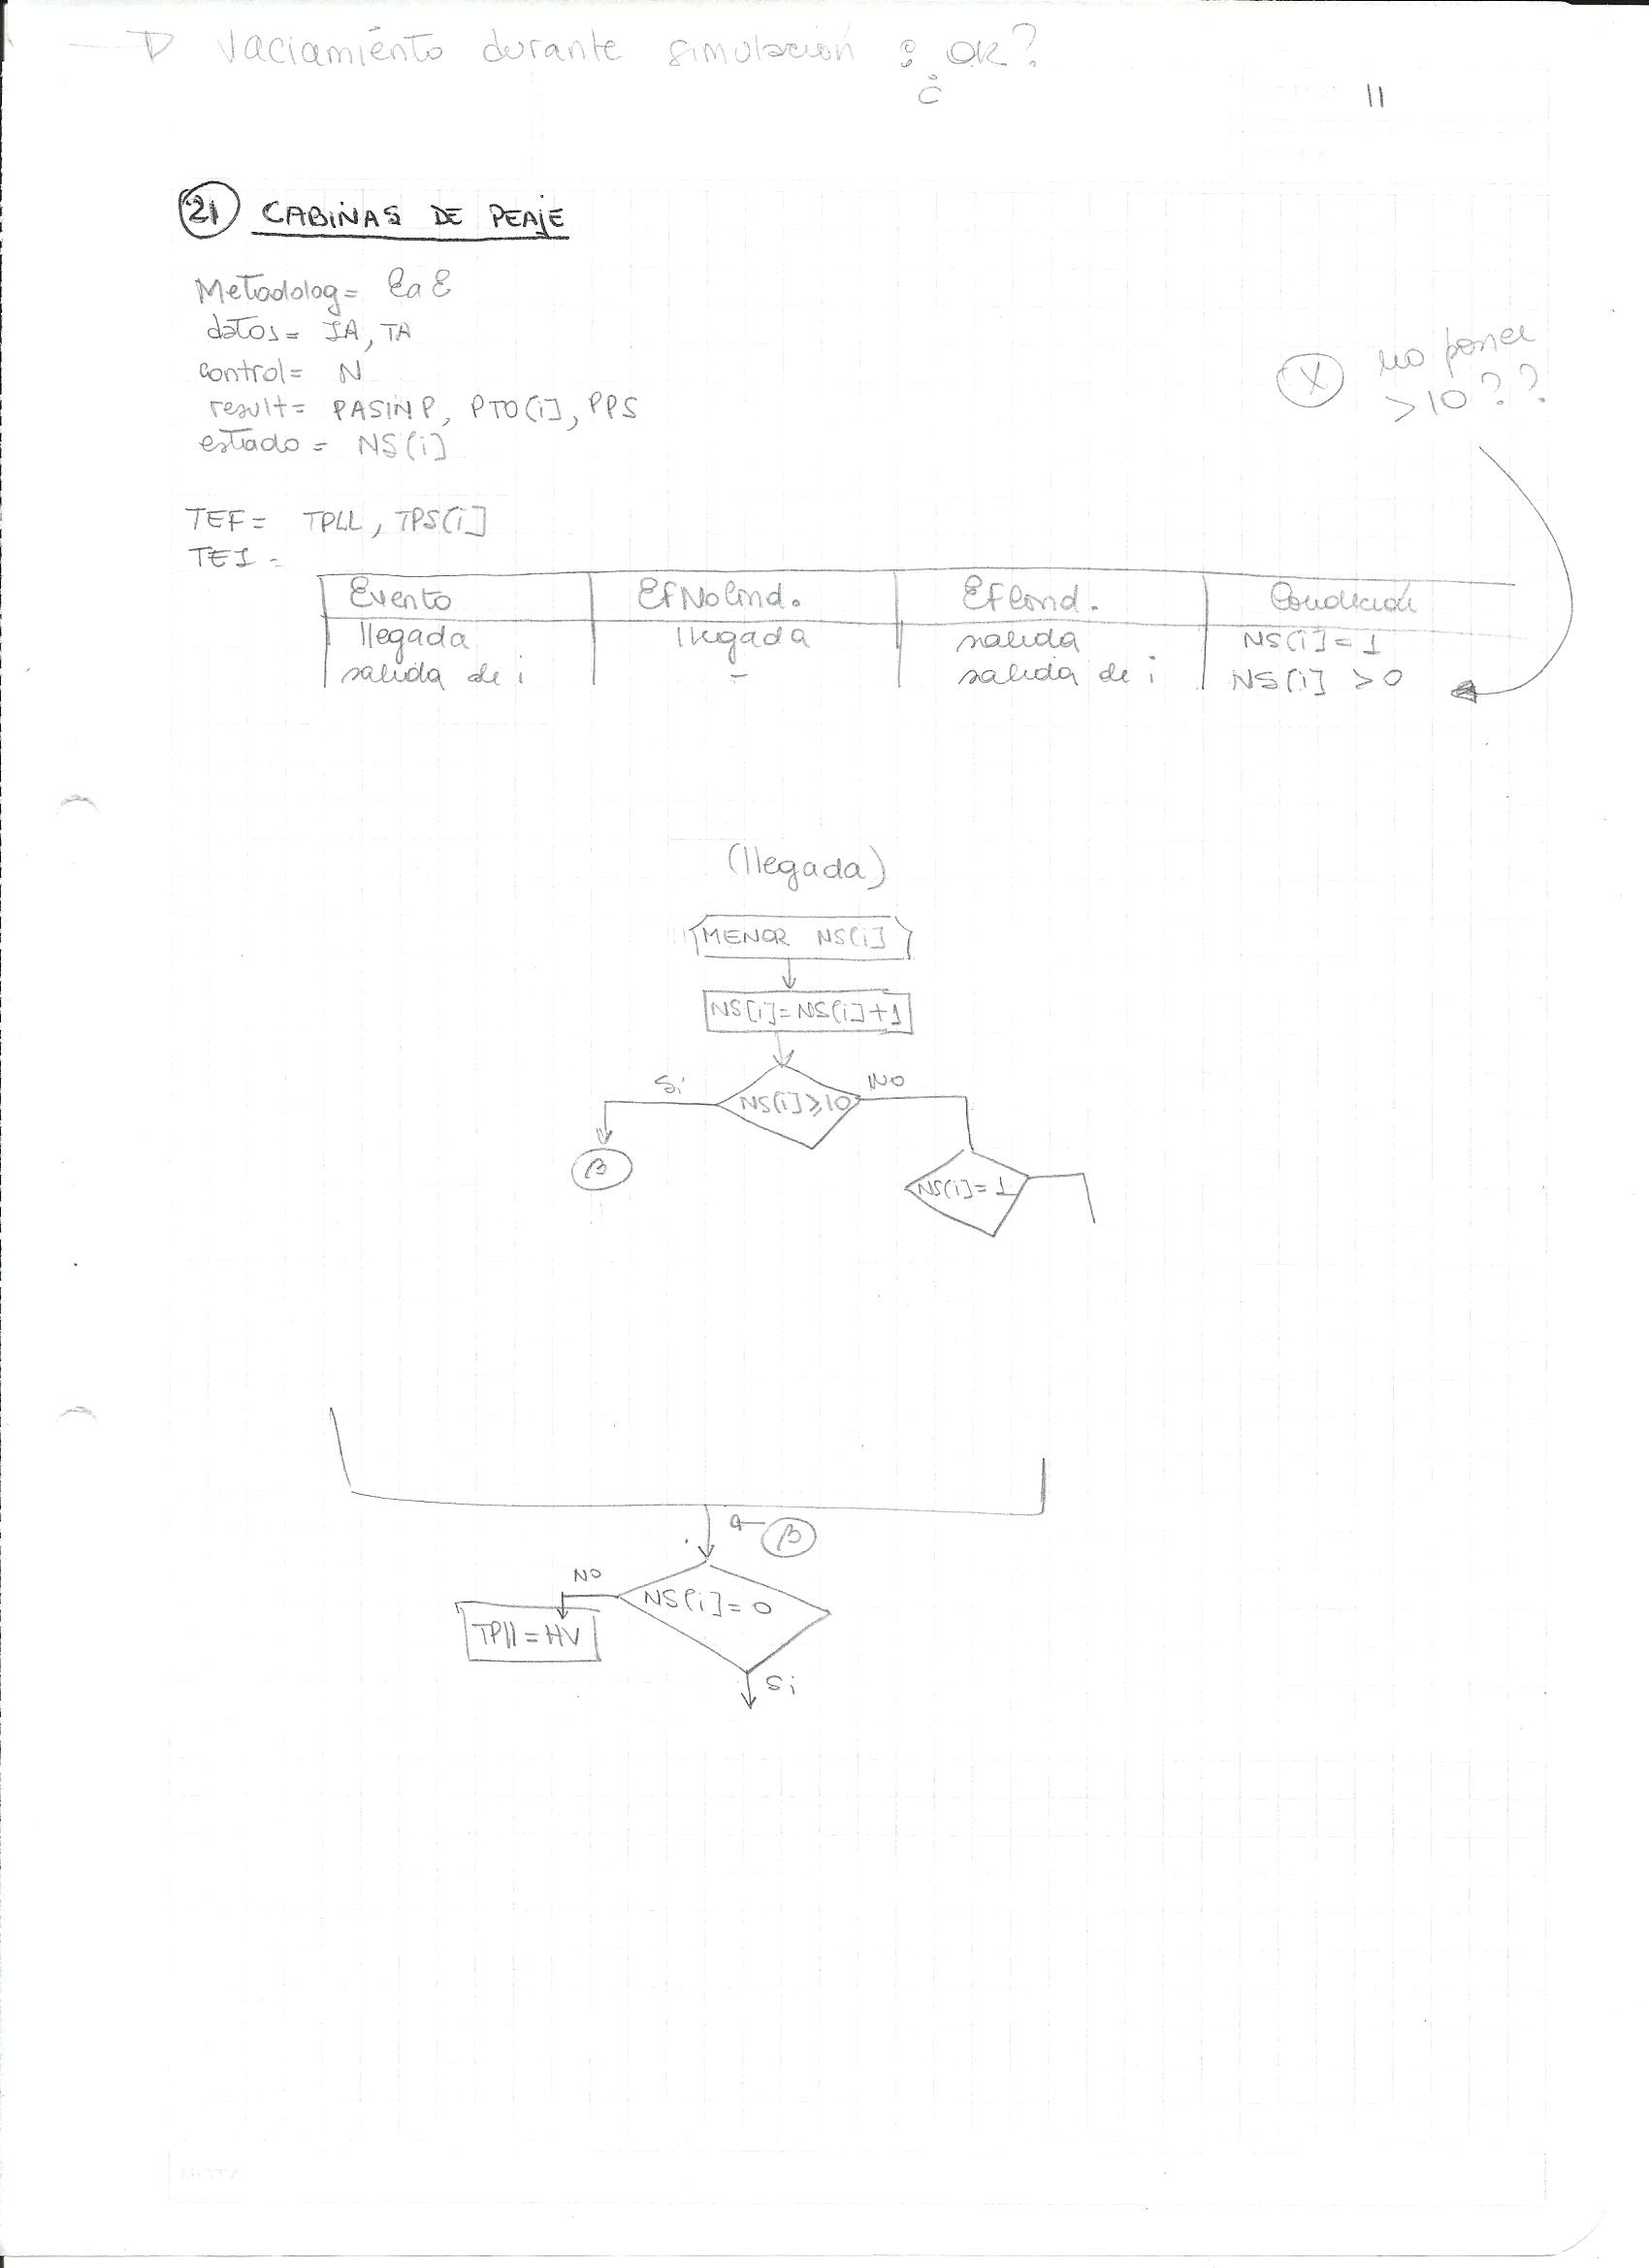 Vaciamiento durante simulación : ¿ OK?
11
21 CABINAS DE PEAJE
Metodolog= EaE
datos= IA, TA
control= N
result= PASINP, PTO[i], PPS
estado = NS[i]
X no poner
>10??
TEF= TPLL, TPS[i]
TEI -
Evento EfNoCond. EfCond. Condición
llegada llegada salida NS[i]=1
salida de i - salida de i NS[i] >0
(llegada)
MENOR NS[i]
NS[i]=NS[i]+1
Si NS[i]≥10 NO
B
NS[i]=1
B
NO NS[i]=0
TPll=HV
Si